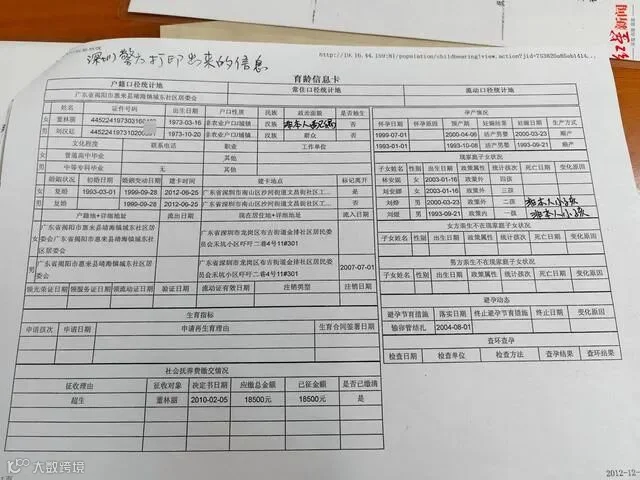 深圳警方打印出来的信息
http://19.16.44.159:81/population/childbearing!view.action?jid=753825a85eb1414...
红星新闻
育龄信息卡
户籍口径统计地 常住口径统计地 流动口径统计地
广东省揭阳市惠来县靖海镇城东社区居委会
姓名 证件号码 出生日期 户口性质 民族 政治面貌 是否独生
女 董林丽 1973-03-16 非农业户口/城镇 汉族 否
男 1973-10-20 非农业户口/城镇 汉族 群众 否
文化程度 联系电话 职业 工作单位
女 普通高中毕业 其他
男 中等专科毕业 无 其他
婚姻状况 初婚日期 婚姻变动日期 建卡时间 建卡地点 标记离开
女 复婚 1993-03-01 1999-09-28 2012-06-25 广东省深圳市南山区沙河街道文昌街社区工... 否
男 复婚 1999-09-28 2012-06-25 广东省深圳市南山区沙河街道文昌街社区工... 否
户籍地+详细地址 流出日期 现在居住地+详细地址 流入日期
女 广东省揭阳市惠来县靖海镇城东社区居委会广东省惠来县靖海镇城东社区
广东省深圳市龙岗区布吉街道金排社区居民委员会禾坑小区吓吓二巷4号11#301
男 广东省揭阳市惠来县靖海镇城东社区居委会
广东省深圳市龙岗区布吉街道金排社区居民委员会禾坑小区吓吓二巷4号11#301 2007-07-01
领光荣证日期 领服务证日期 领流动证日期 验证日期 流动证有效日期 注销类型 注销日期
生育指标
申请孩次 申请日期 申请再生育理由 生育合同签署日期
社会抚养费缴交情况
征收理由 征收对象 决定书日期 应缴总金额 已征金额 是否已缴清
超生 董林丽 2010-02-05 18500元 18500元 是
孕产情况
怀孕日期 怀孕原因 预产期 妊娠结果 妊娠日期 生产方式
1999-07-01 2000-04-06 活产男婴 2000-03-23 顺产
1992-12-31 1993-10-06 活产男婴 1993-09-21 顺产
现家庭子女状况
子女姓名 性别 出生日期 政策属性 统计孩次 死亡日期 变化原因
女 2003-01-16 政策外 四孩
女 2003-01-16 政策外 三孩
男 2000-03-23 政策外 二孩 本人小孩
男 1993-09-21 政策内 一孩 本人小孩
女方亲生不在现家庭子女状况
子女姓名 性别 出生日期 政策属性 统计孩次 死亡日期 变化原因
男方亲生不在现家庭子女状况
子女姓名 性别 出生日期 政策属性 统计孩次 死亡日期 变化原因
避孕动态
避孕节育措施 落实日期 终止避孕节育措施 终止日期 变化原因
输卵管结扎 2004-08-01
查环查孕
检查日期 检查单位 检查方法 查孕结果 查环结果
2012-12-
大数跨境